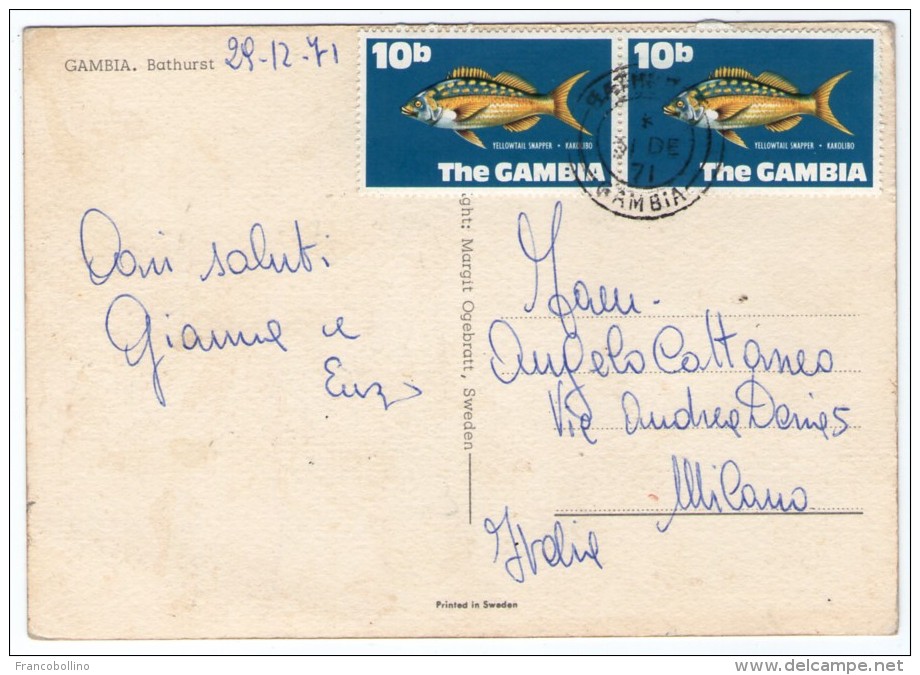 GAMBIA. Bathurst 29-12-71
10b
YELLOWTAIL SNAPPER • KAKOLIBO
The GAMBIA
10b
YELLOWTAIL SNAPPER • KAKOLIBO
The GAMBIA
DE
71
GAMBIA
Cari saluti
Gianna e
Enzo
ght: Margit Ogebratt, Sweden
Fam.
Angelo Cattaneo
Via Andrea 5
Milano
Italia
Printed in Sweden
Francobollino
www.delcampe.net